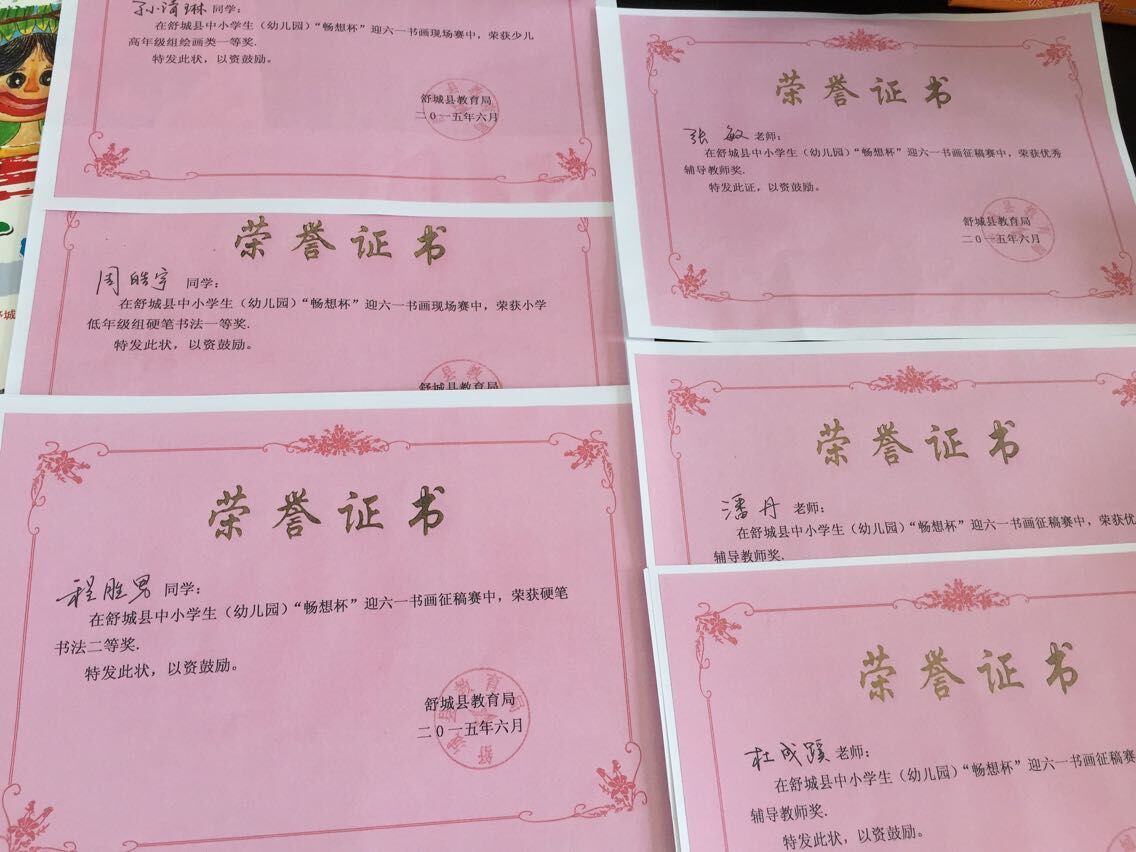 同学：
在舒城县中小学生（幼儿园）“畅想杯”迎六一书画现场赛中，荣获少儿
高年级组绘画类一等奖.
特发此状，以资鼓励。
舒城县教育局
二0一五年六月
荣誉证书
周皓宇 同学：
在舒城县中小学生（幼儿园）“畅想杯”迎六一书画现场赛中，荣获小学
低年级组硬笔书法一等奖.
特发此状，以资鼓励。
舒城县教育局
荣誉证书
程胜男 同学：
在舒城县中小学生（幼儿园）“畅想杯”迎六一书画征稿赛中，荣获硬笔
书法二等奖.
特发此状，以资鼓励。
舒城县教育局
二0一五年六月
荣誉证书
张敏 老师：
在舒城县中小学生（幼儿园）“畅想杯”迎六一书画征稿赛中，荣获优秀
辅导教师奖.
特发此证，以资鼓励。
舒城县教育局
二0一五年六月
荣誉证书
潘丹 老师：
在舒城县中小学生（幼儿园）“畅想杯”迎六一书画征稿赛中，荣获优
辅导教师奖.
荣誉证书
杜成蹊 老师：
在舒城县中小学生（幼儿园）“畅想杯”迎六一书画征稿赛
辅导教师奖.
特发此状，以资鼓励。
舒城